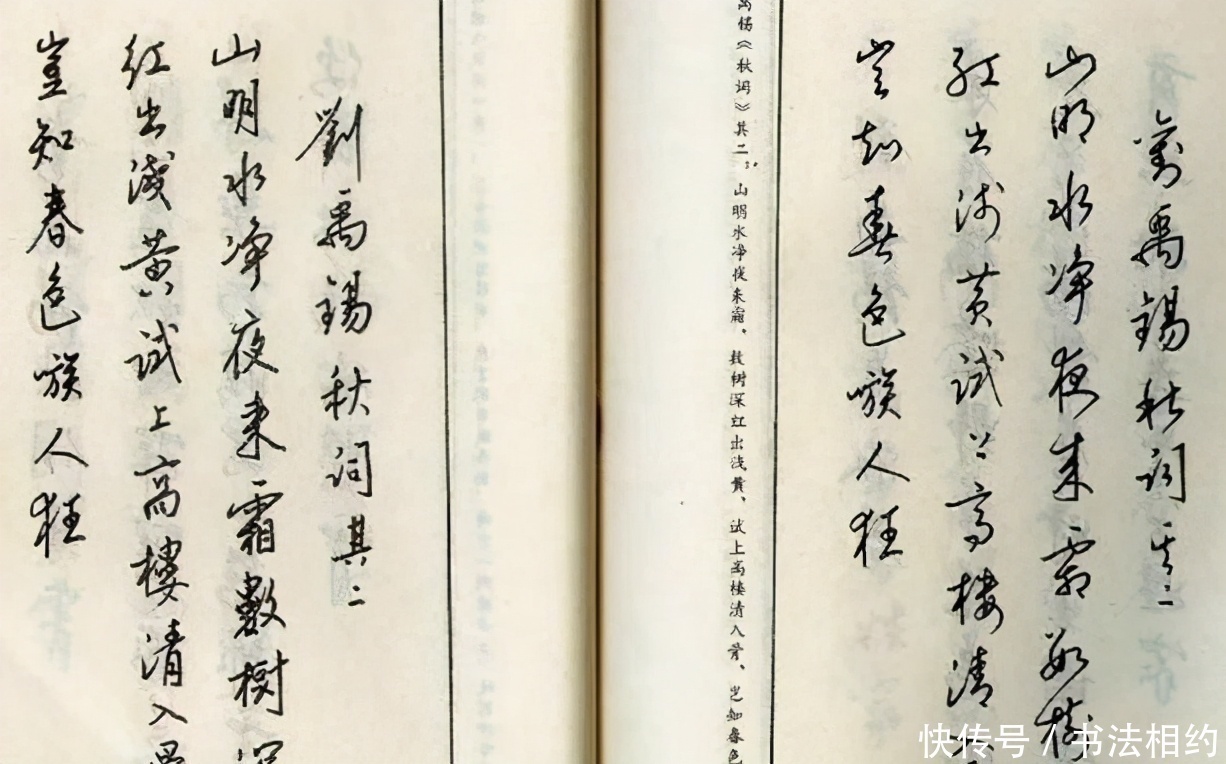 刘禹锡秋词其二
山明水净夜来霜数树
红出浅黄试上高楼清入
岂知春色嗾人狂
禹锡《秋词》其二。山明水净夜来霜、数树深红出浅黄、试上高楼清入骨、岂知春色
劉禹锡秋词其二
山明水净夜来霜數樹深
红出淺黄试上高樓清入骨
豈知春色嗾人狂
快传号 / 书法相约